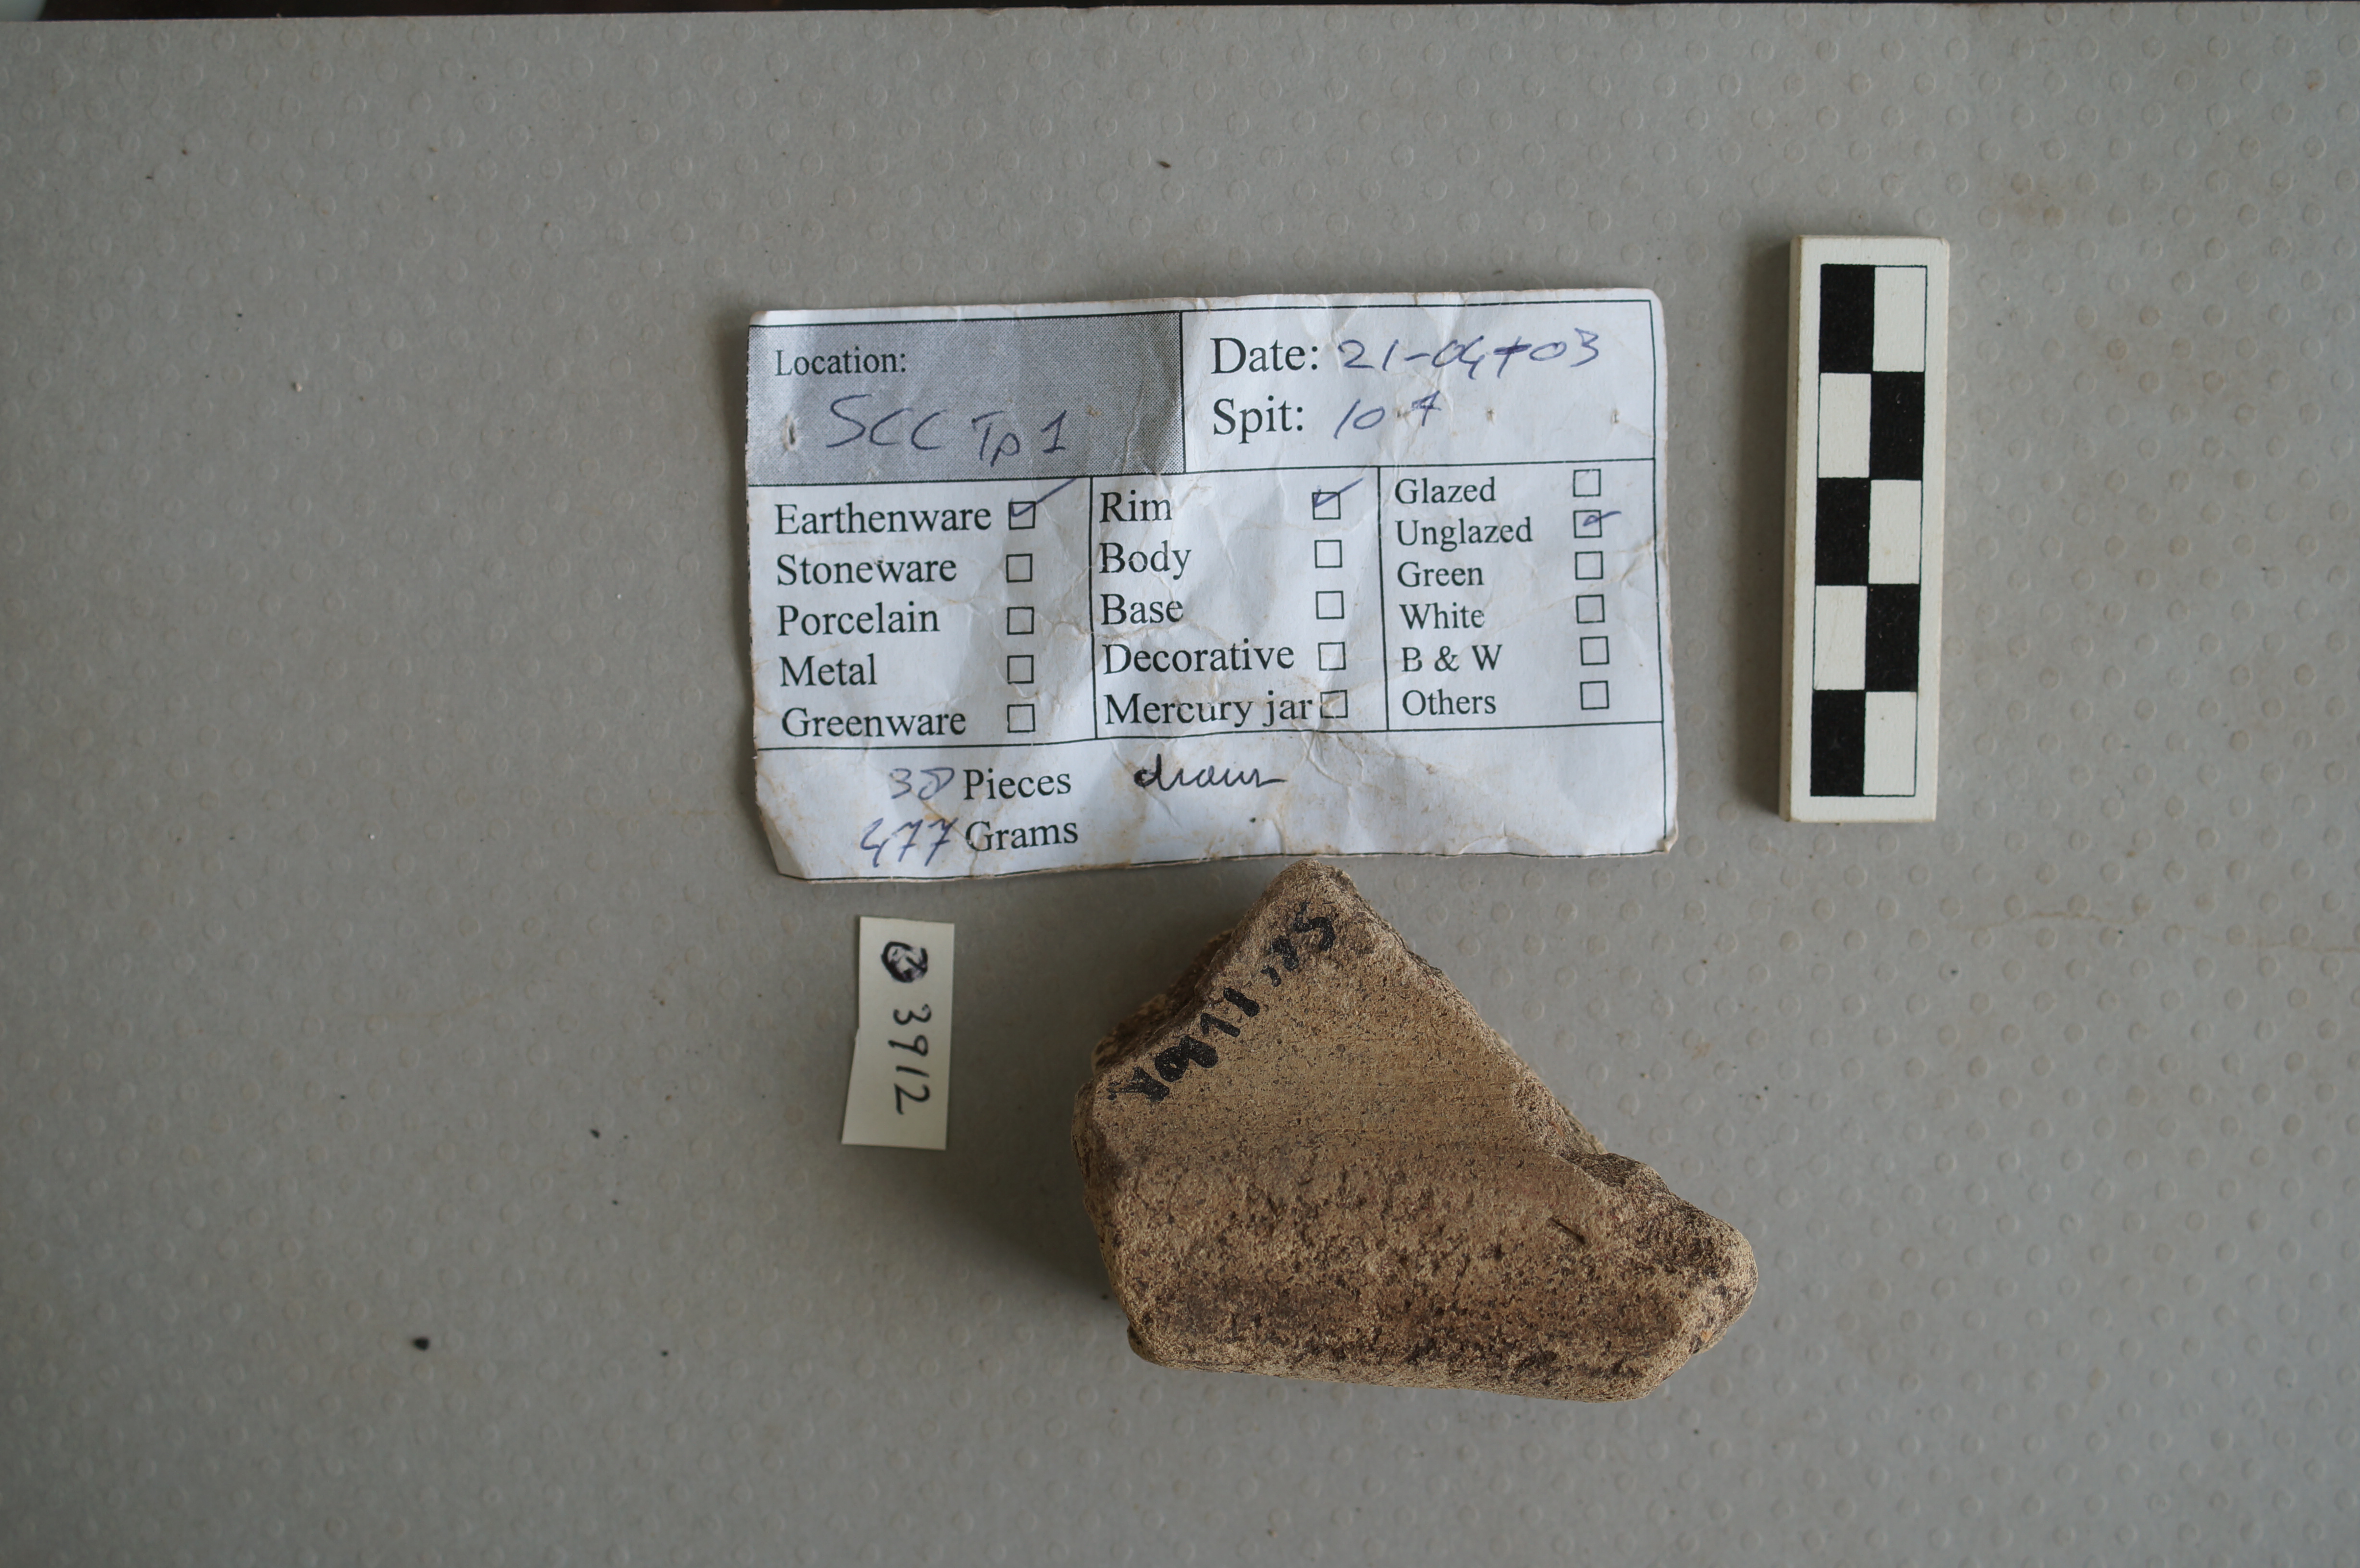 Location:
SCC TP 1
Date: 21-04-03
Spit: 10
Earthenware
Stoneware
Porcelain
Metal
Greenware
Rim
Body
Base
Decorative
Mercury jar
Glazed
Unglazed
Green
White
B & W
Others
Pieces drawn
477 Grams
3912